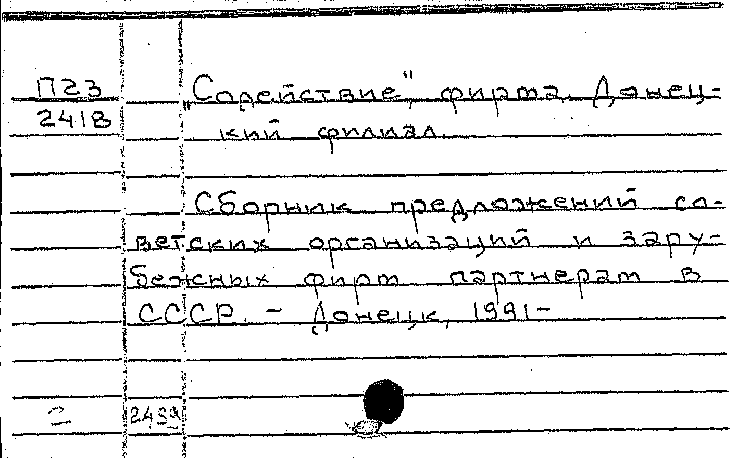 П23
2418
„Содействие", фирма. Донец-
кий филиал.
Сборник предложений со-
ветских организаций и зару-
бежных фирм партнерам в
СССР. – Донецк, 1991–